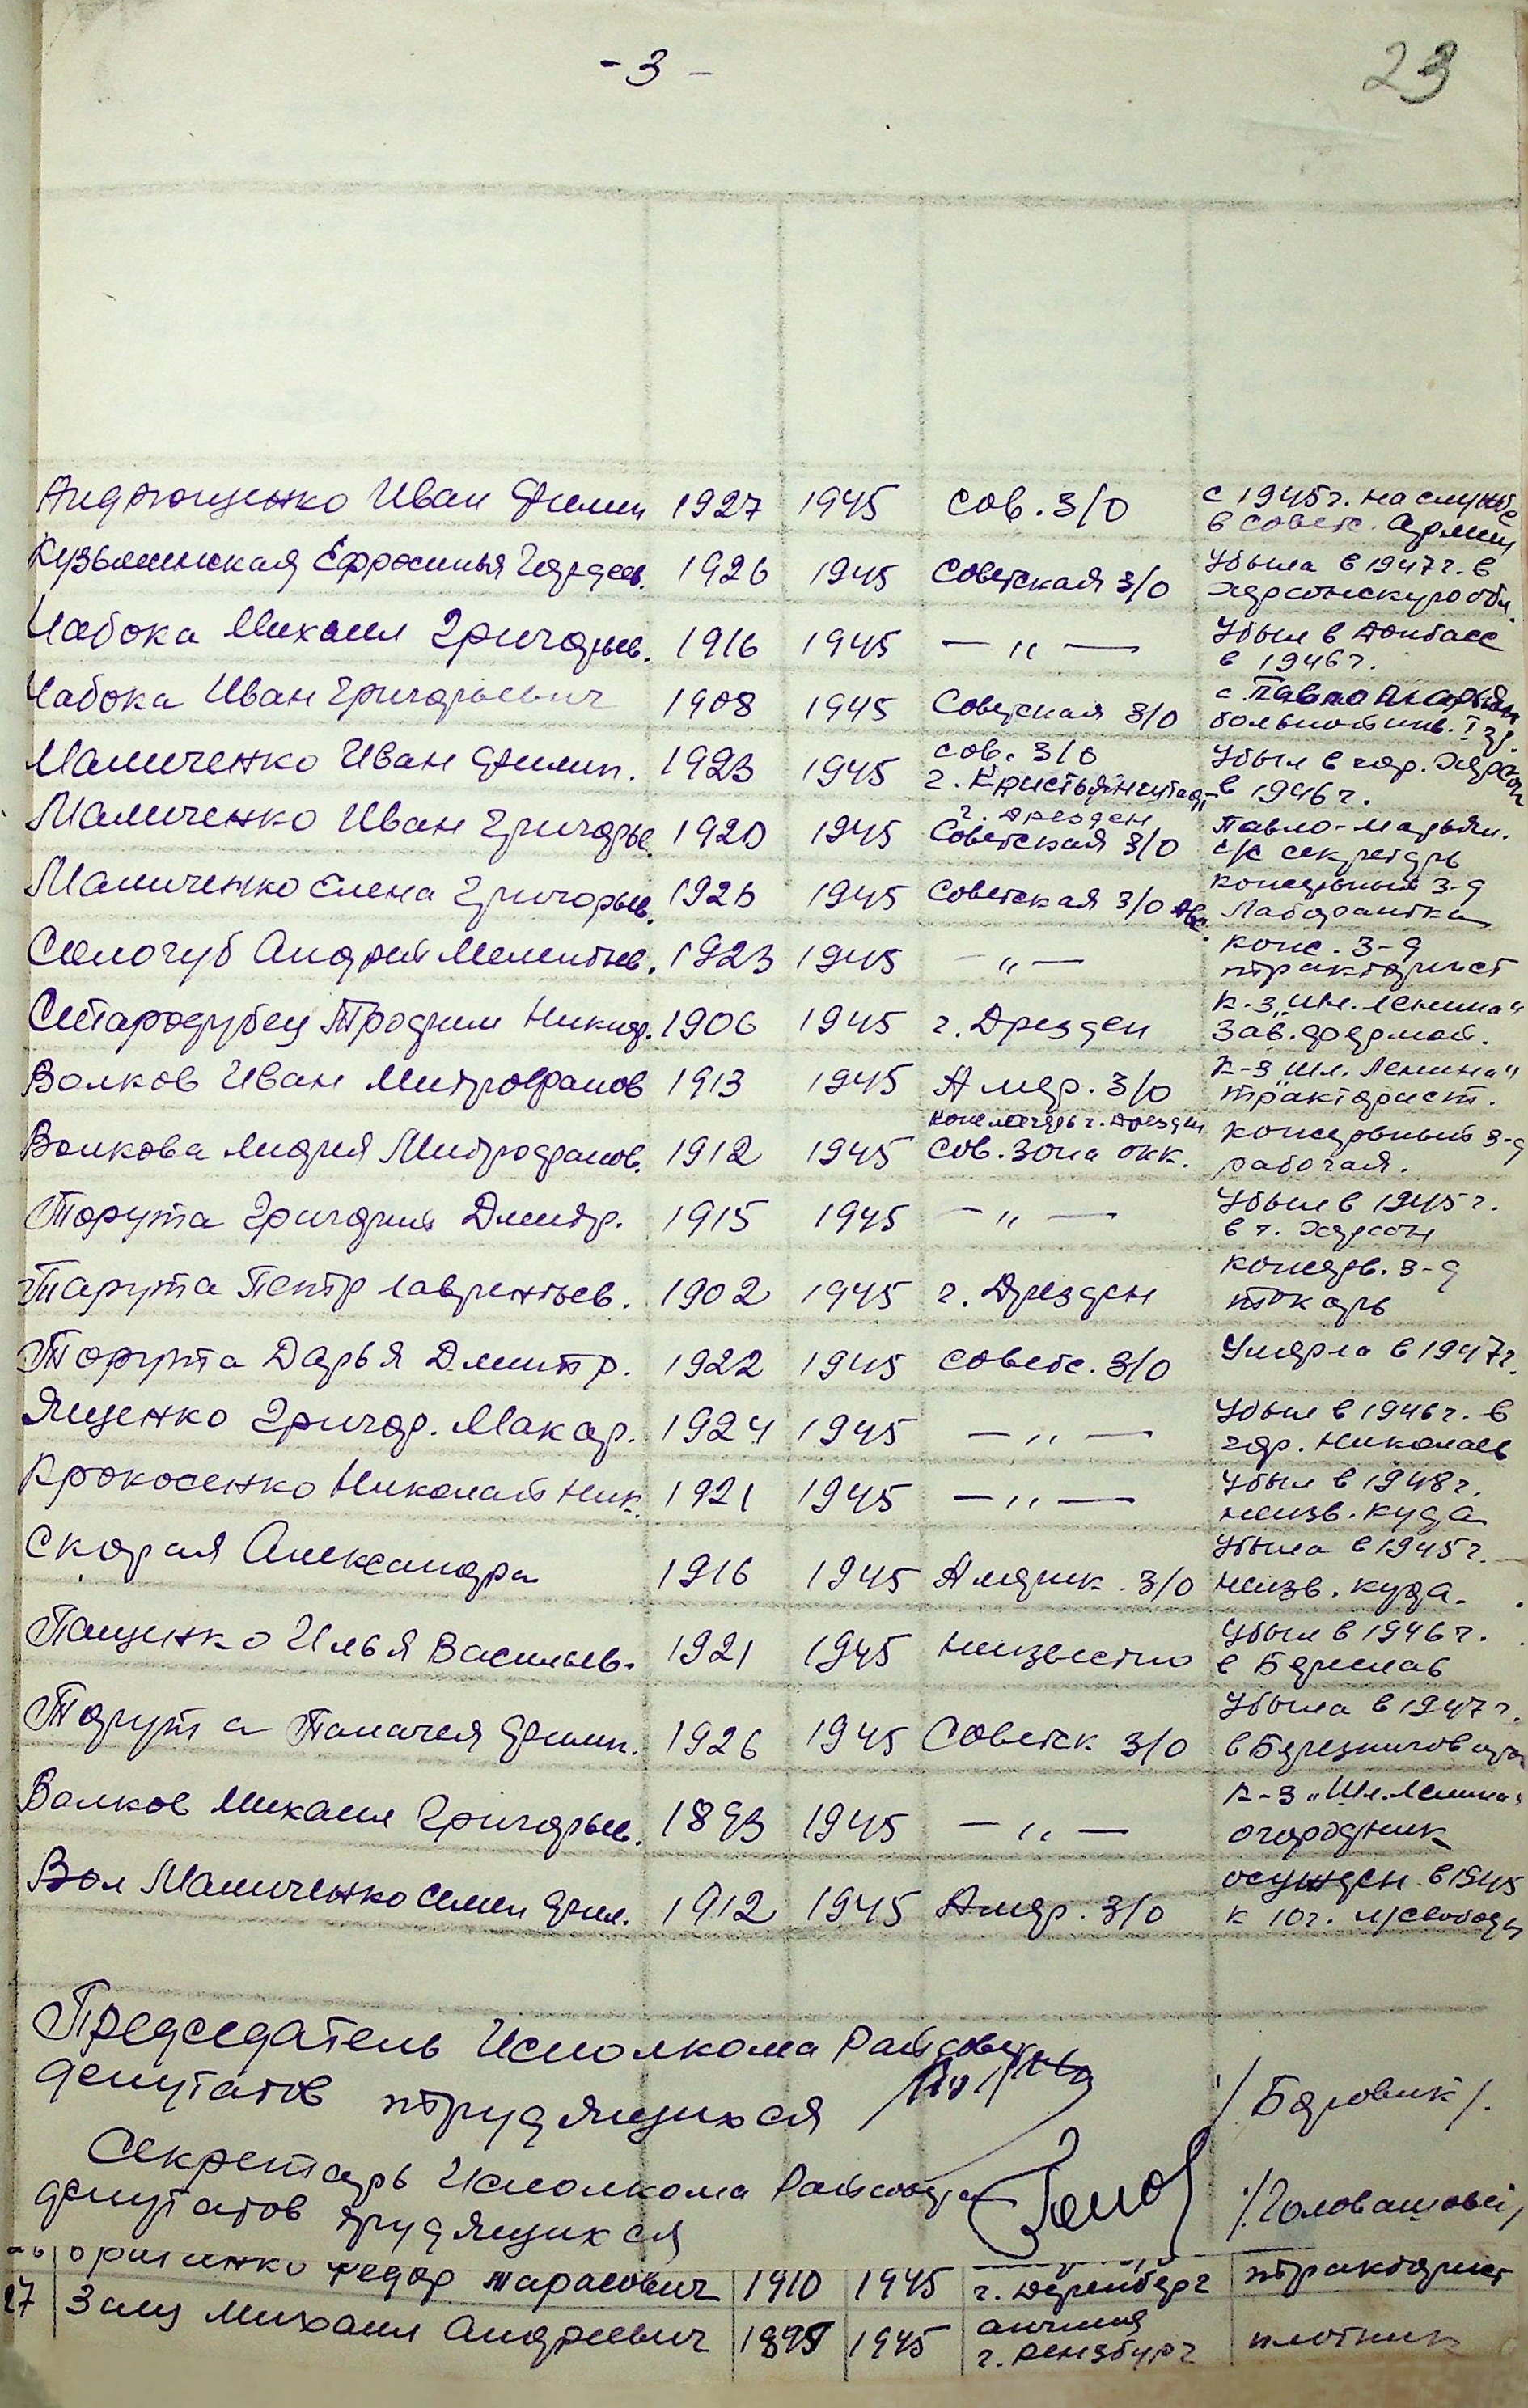 - 3 -
23
Андрющенко Иван Филип 1927 1945 Сов. З/О с 1945 г. на службе
в Советс. Армии
Кузьминская Ефросинья Гордеев. 1926 1945 Советская З/О Убыла в 1947 г. в
Херсонскую обл.
Чабока Михаил Григорьев. 1916 1945 — „ — Убыл в Донбасс
в 1946 г.
Чабока Иван Григорьевич 1908 1945 Советская З/О с. Павло Марьян
больной инв. I гр.
Маличенко Иван Филип. 1923 1945 Сов. З/О Убыл в гор. Херсон
г. Кристьянштадт в 1946 г.
г. Дрезден
Маличенко Иван Григорье. 1920 1945 Советская З/О Павло-Марьян.
с/с секретарь
Маличенко Елена Григорьев. 1923 1945 Советская З/О консервный з-д
Лаборантка
Сологуб Андрей Мелентьев. 1923 1945 — „ — конс. з-д
тракторист
Стародубец Трофим Никиф. 1906 1945 г. Дрезден к-з „им. Ленина"
Зав. фермой.
Волков Иван Митрофанов 1913 1945 Амер. З/О к-з „им. Ленина"
тракторист.
Конслагерь г. Дрезден
Волкова Лидия Митрофанов. 1912 1945 Сов. Зона окк. консервный з-д
рабочая.
Торута Григорий Дмитр. 1915 1945 — „ — Убыл в 1945 г.
в г. Херсон
Тарута Петр Лаврентьев. 1902 1945 г. Дрезден консерв. з-д
токарь
Торута Дарья Дмитр. 1922 1945 Советс. З/О Умерла в 1947 г.
Ященко Григор. Макар. 1924 1945 — „ — Убыл в 1946 г. в
гор. Николаев
Крокосенко Николай Ник. 1921 1945 — „ — Убыл в 1948 г.
неизв. куда
Скорая Александра 1916 1945 Америк. З/О Убыла в 1945 г.
неизв. куда.
Пащенко Илья Васильев. 1921 1945 Неизвестно Убыл в 1946 г.
в Берислав
Торута Палагея Филип. 1926 1945 Советск З/О Убыла в 1947 г.
в Березнеговат
Волков Михаил Григорьев. 1893 1945 — „ — к-з „Им. Ленина"
огородник
Вол Маличенко Семен Фил. 1912 1945 Амер. З/О осужден в 1945
к 10 г. л/свободы
Председатель Исполкома Райсовета
депутатов трудящихся /Беровик/.
Секретарь Исполкома Райсовета
депутатов трудящихся
Федор Тарасович 1910 1945 тракторист
27 Заяц Михаил Андреевич 1895 1945 плотник